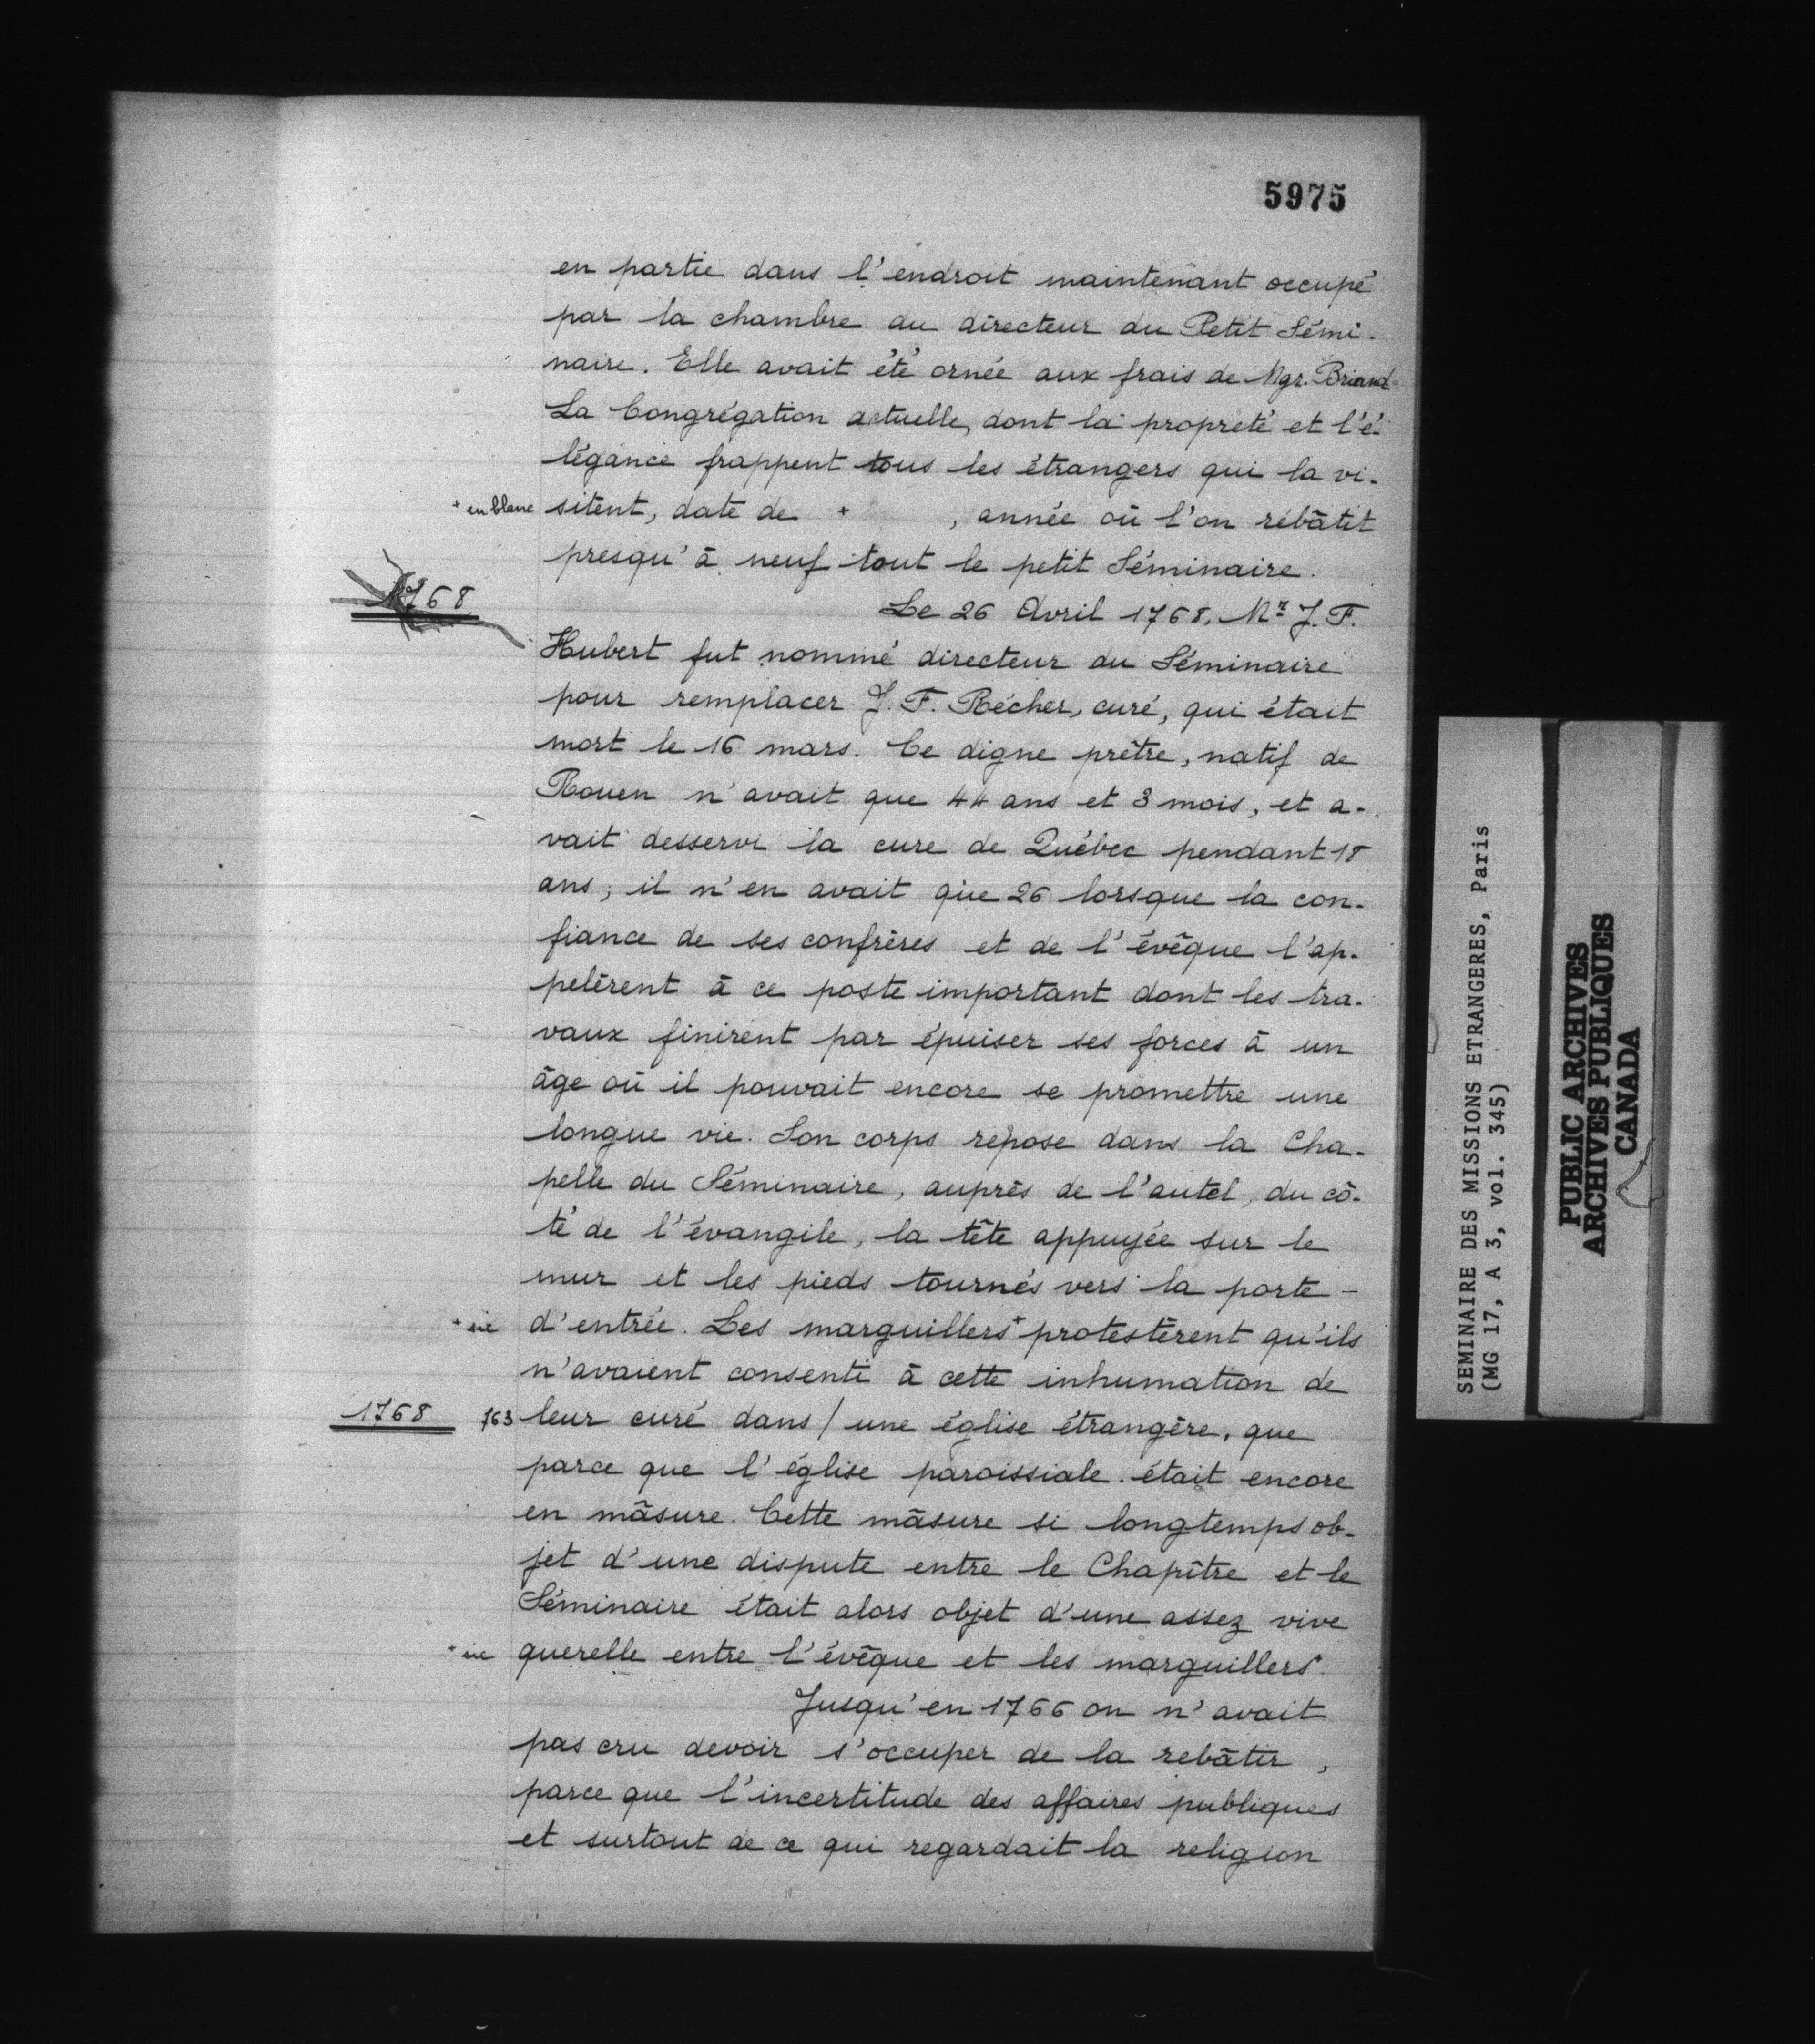 5975
en partie dans l'endroit maintenant occupé
par la chambre du directeur du Petit Sémi-
naire. Elle avait été ornée aux frais de Mgr. Briand
La Congrégation actuelle, dont la propreté et l'é-
légance frappent tous les étrangers qui la vi-
+ en blanc sitent, date de + , année où l'on rebâtit
presqu'à neuf tout le petit Séminaire.
1768 Le 26 Avril 1768, Mr J. F.
Hubert fut nommé directeur du Séminaire
pour remplacer J. F. Récher, curé, qui était
mort le 16 mars. Ce digne prêtre, natif de
Rouen n'avait que 44 ans et 3 mois, et a-
vait desservi la cure de Québec pendant 18
ans; il n'en avait que 26 lorsque la con-
fiance de ses confrères et de l'évêque l'ap-
pelèrent à ce poste important dont les tra-
vaux finirent par épuiser ses forces à un
âge où il pouvait encore se promettre une
longue vie. Son corps repose dans la Cha-
pelle du Séminaire, auprès de l'autel, du cô-
té de l'évangile, la tête appuyée sur le
mur et les pieds tournés vers la porte -
+ sic d'entrée. Les marguillers+ protestèrent qu'ils
n'avaient consenti à cette inhumation de
1768 763 leur curé dans / une église étrangère, que
parce que l'église paroissiale était encore
en mâsure. Cette mâsure si longtemps ob-
jet d'une dispute entre le Chapître et le
Séminaire était alors objet d'une assez vive
+ sic querelle entre l'évêque et les marguillers+.
Jusqu'en 1766 on n'avait
pas cru devoir s'occuper de la rebâtir,
parce que l'incertitude des affaires publiques
et surtout de ce qui regardait la religion
SEMINAIRE DES MISSIONS ETRANGERES, Paris
(MG 17, A 3, vol. 345)
PUBLIC ARCHIVES
ARCHIVES PUBLIQUES
CANADA